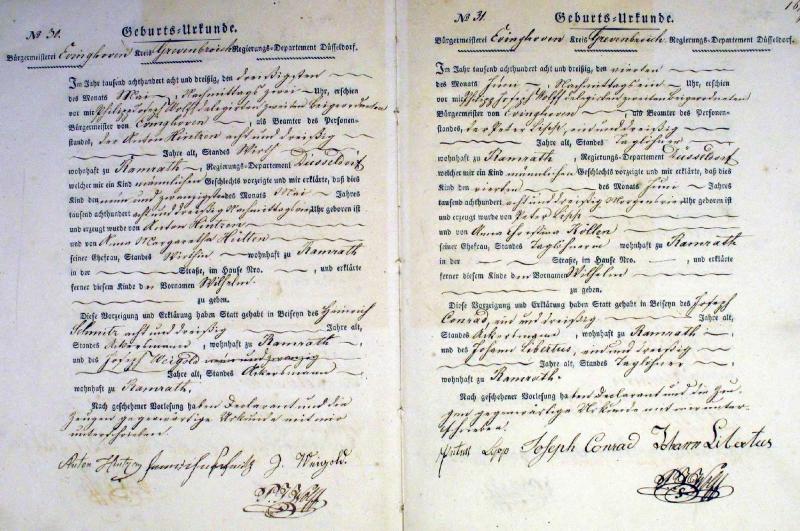 No 30.
Geburts-Urkunde.
Bürgermeisterei Evinghoven Kreis Grevenbroich Regierungs-Departement Düsseldorf.
Im Jahr tausend achthundert acht und dreißig, den dreißigsten
des Monats Mai, Nachmittags zwei Uhr, erschien
vor mir Philipp Joseph Wolff delegirten zweiten Beigeordneten
Bürgermeister von Evinghoven, als Beamter der Personen-
standes, der Anton Hintzen acht und dreißig
Jahre alt, Standes Wirth
wohnhaft zu Ramrath, Regierungs-Departement Düsseldorf
welcher mir ein Kind männlichen Geschlechts vorzeigte und mir erklärte, daß dies
Kind den neun und zwanzigsten des Monats Mai Jahres
tausend achthundert acht und dreißig Nachmittags ein Uhr geboren ist
und erzeugt wurde von Anton Hintzen
und von Anna Margaretha Hütten
seiner Ehefrau, Standes Wirthin wohnhaft zu Ramrath
in der Straße, im Hause Nro. , und erklärte
ferner diesem Kinde den Vornamen Wilhelm
zu geben.
Diese Vorzeigung und Erklärung haben Statt gehabt in Beiseyn des Heinrich
Schmitz acht und dreißig Jahre alt,
Standes Ackersmann, wohnhaft zu Ramrath
und des Joseph Weigold neun und zwanzig
Jahre alt, Standes Ackersmann
wohnhaft zu Ramrath.
Nach geschehener Vorlesung haben Declarant und die
Zeugen gegenwärtige Urkunde mit mir
unterschrieben.
Anton Hintzen Heinrich Schmitz J. Weigold.
P. J. Wolff
No 31.
Geburts-Urkunde.
Bürgermeisterei Evinghoven Kreis Grevenbroich Regierungs-Departement Düsseldorf.
Im Jahr tausend achthundert acht und dreißig, den vierten
des Monats Juni, Nachmittags ein Uhr, erschien
vor mir Philipp Joseph Wolff delegirten zweiten Beigeordneten
Bürgermeister von Evinghoven als Beamter der Personen-
standes, der Peter Lipp, ein und dreißig
Jahre alt, Standes Taglöhner
wohnhaft zu Ramrath, Regierungs-Departement Düsseldorf
welcher mir ein Kind männlichen Geschlechts vorzeigte und mir erklärte, daß dies
Kind den vierten des Monats Juni Jahres
tausend achthundert acht und dreißig Morgens Uhr geboren ist
und erzeugt wurde von Peter Lipp
und von Anna Christina Köllen
seiner Ehefrau, Standes Taglöhnerin wohnhaft zu Ramrath
in der Straße, im Hause Nro. , und erklärte
ferner diesem Kinde den Vornamen Wilhelm
zu geben.
Diese Vorzeigung und Erklärung haben Statt gehabt in Beiseyn des Joseph
Conrad, ein und dreißig Jahre alt,
Standes Ackersmann, wohnhaft zu Ramrath
und des Johann Libertus, ein und dreißig
Jahre alt, Standes Taglöhner
wohnhaft zu Ramrath.
Nach geschehener Vorlesung haben Declarant und die Zeu-
gen gegenwärtige Urkunde mit mir unter-
schrieben.
Petrus Lipp Joseph Conrad Johann Libertus
P. J. Wolff